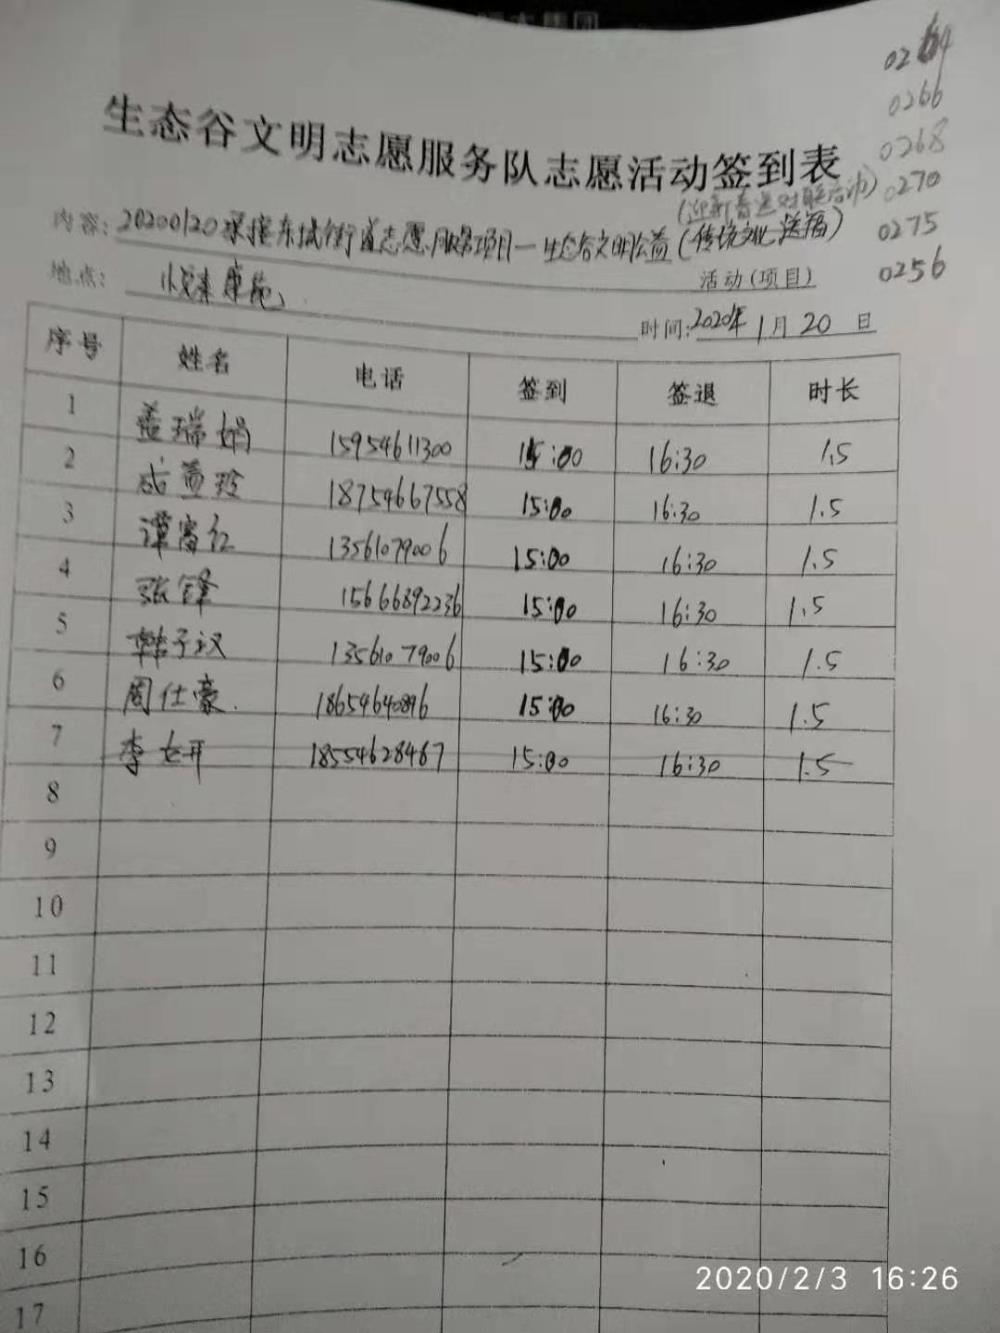 0264
0266
0268
0270
0275
0256
生态谷文明志愿服务队志愿活动签到表
(迎新春送对联活动)
内容: 20200120承接东城街道志愿服务项目一生态谷文明公益(传统文化送福)
活动(项目)
地点: 悦来康苑
时间:2020年1月20日
序号 姓名 电话 签到 签退 时长
1 盖瑞娟 15954611300 15:00 16:30 1.5
2 成黄玲 18754667558 15:00 16:30 1.5
3 谭富红 13561079006 15:00 16:30 1.5
4 张锋 15666892236 15:00 16:30 1.5
5 韩子议 13561079006 15:00 16:30 1.5
6 周仕豪 18654640896 15:00 16:30 1.5
7 李 妍 18554628467 15:00 16:30 1.5
8
9
10
11
12
13
14
15
16
17
2020/2/3 16:26